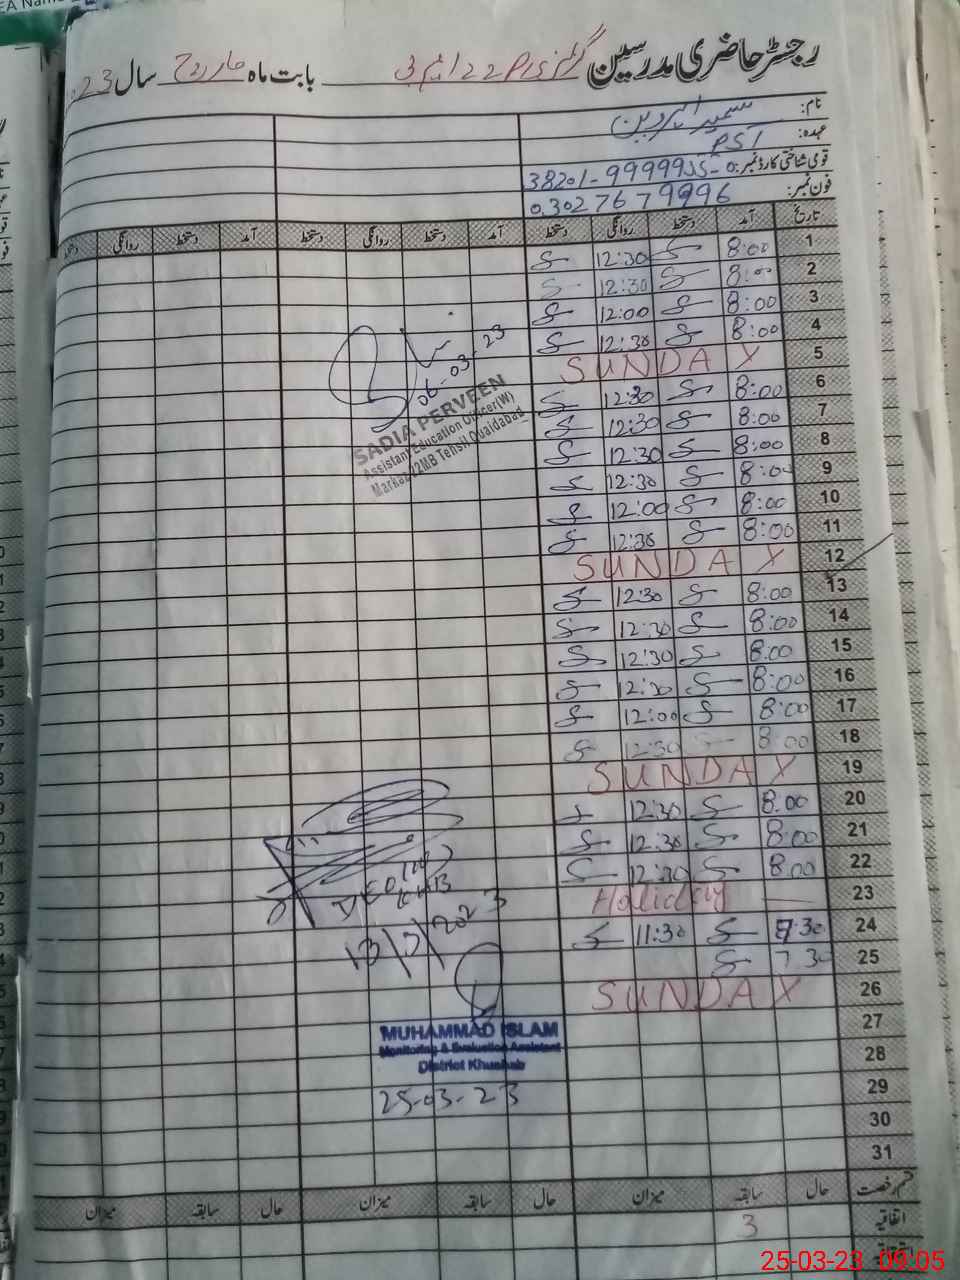 رجسٹر حاضری مدرسین گرلز P/S 22 ایم بی بابت ماہ مارچ سال 23
نام: سمیرا پروین
عہدہ: PST
قومی شناختی کارڈ نمبر:
فون نمبر: 0302 7679996
تاریخ آمد دستخط روانگی دستخط آمد دستخط روانگی دستخط آمد دستخط روانگی دستخط
1 8:00 12:30
2 8:00 12:30
3 8:00 12:00
4 8:00 12:30
5 SUNDAY
6 8:00 12:30
7 8:00 12:30
8 8:00 12:30
9 8:00 12:30
10 8:00 12:00
11 8:00 12:30
12 SUNDAY
13 8:00 12:30
14 8:00 12:30
15 8:00 12:30
16 8:00 12:30
17 8:00 12:00
18 8:00 12:30
19 SUNDAY
20 8:00 12:30
21 8:00 12:30
22 8:00 12:30
23 Holiday
24 7:30 11:30
25 7 30
26 SUNDAY
27
28
29
30
31
06-03-23
SADIA PERVEEN
Assistant Education Officer(W)
Markaz 22MB Tehsil Quaidabad
MUHAMMAD ISLAM
Monitoring & Evaluation Assistant
District Khushab
25-03-23
قسم رخصت حال سابقہ میزان حال سابقہ میزان حال سابقہ میزان
اتفاقیہ 3
25-03-23 09:05